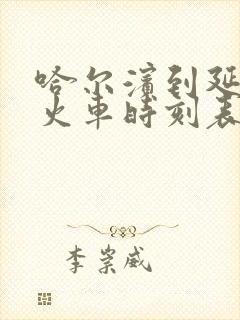 哈尔滨到延
火车时刻表
李崇威